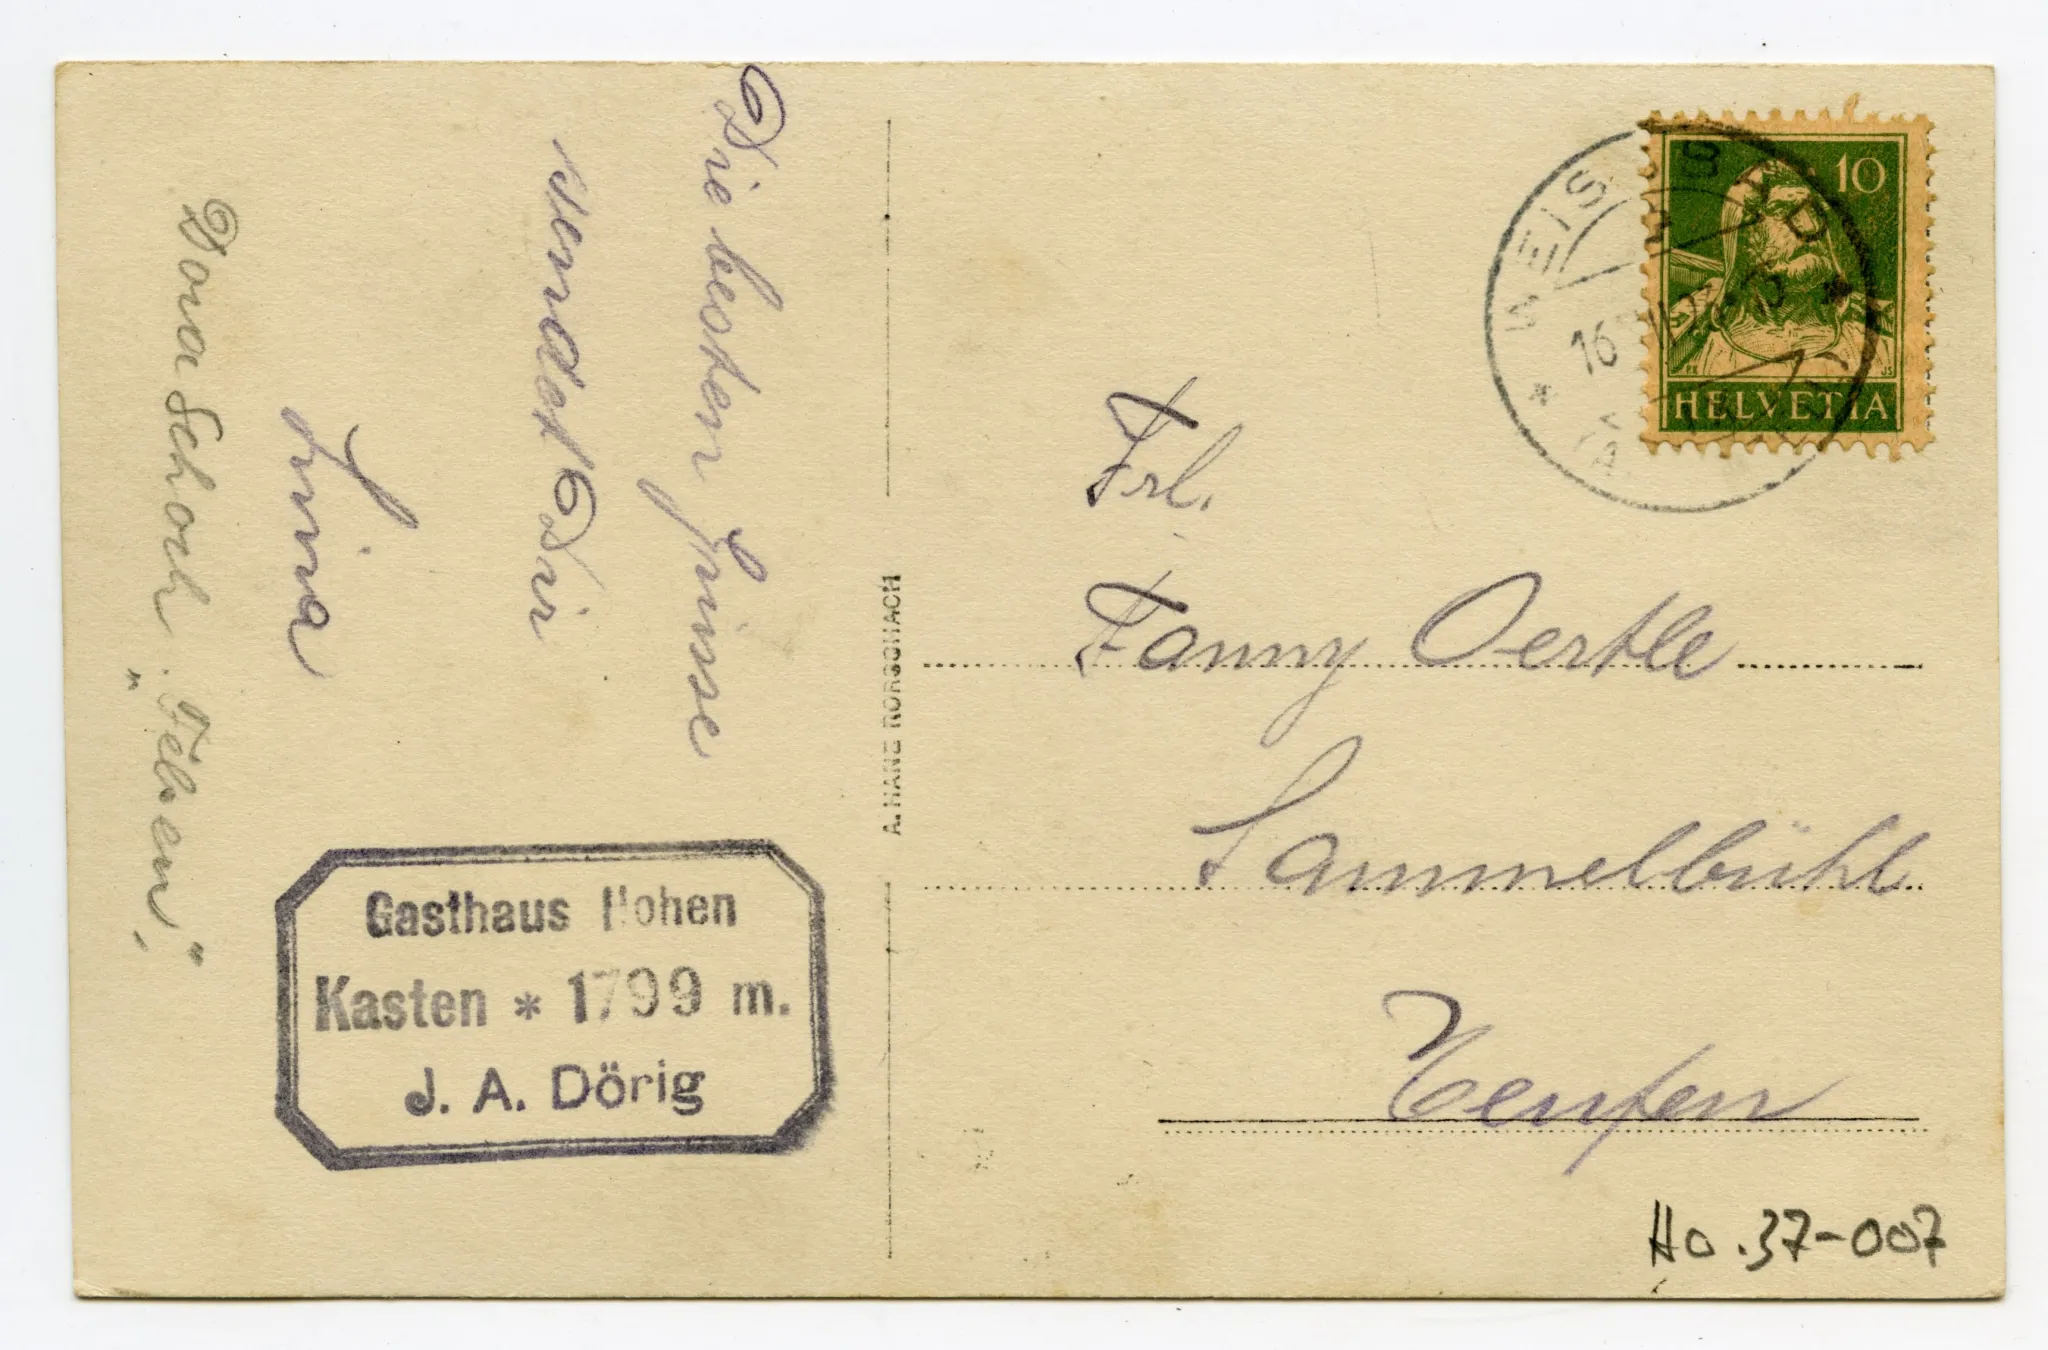 Die besten Grüsse
sendet Dir
Lina
Dora Schoch
A. HANE RORSCHACH
Gasthaus Hohen
Kasten * 1799 m.
J. A. Dörig
WEISSBAD
16
10
HELVETIA
Frl.
Fanny Oertle
Sammelbühl
Teufen
Ho.37-007